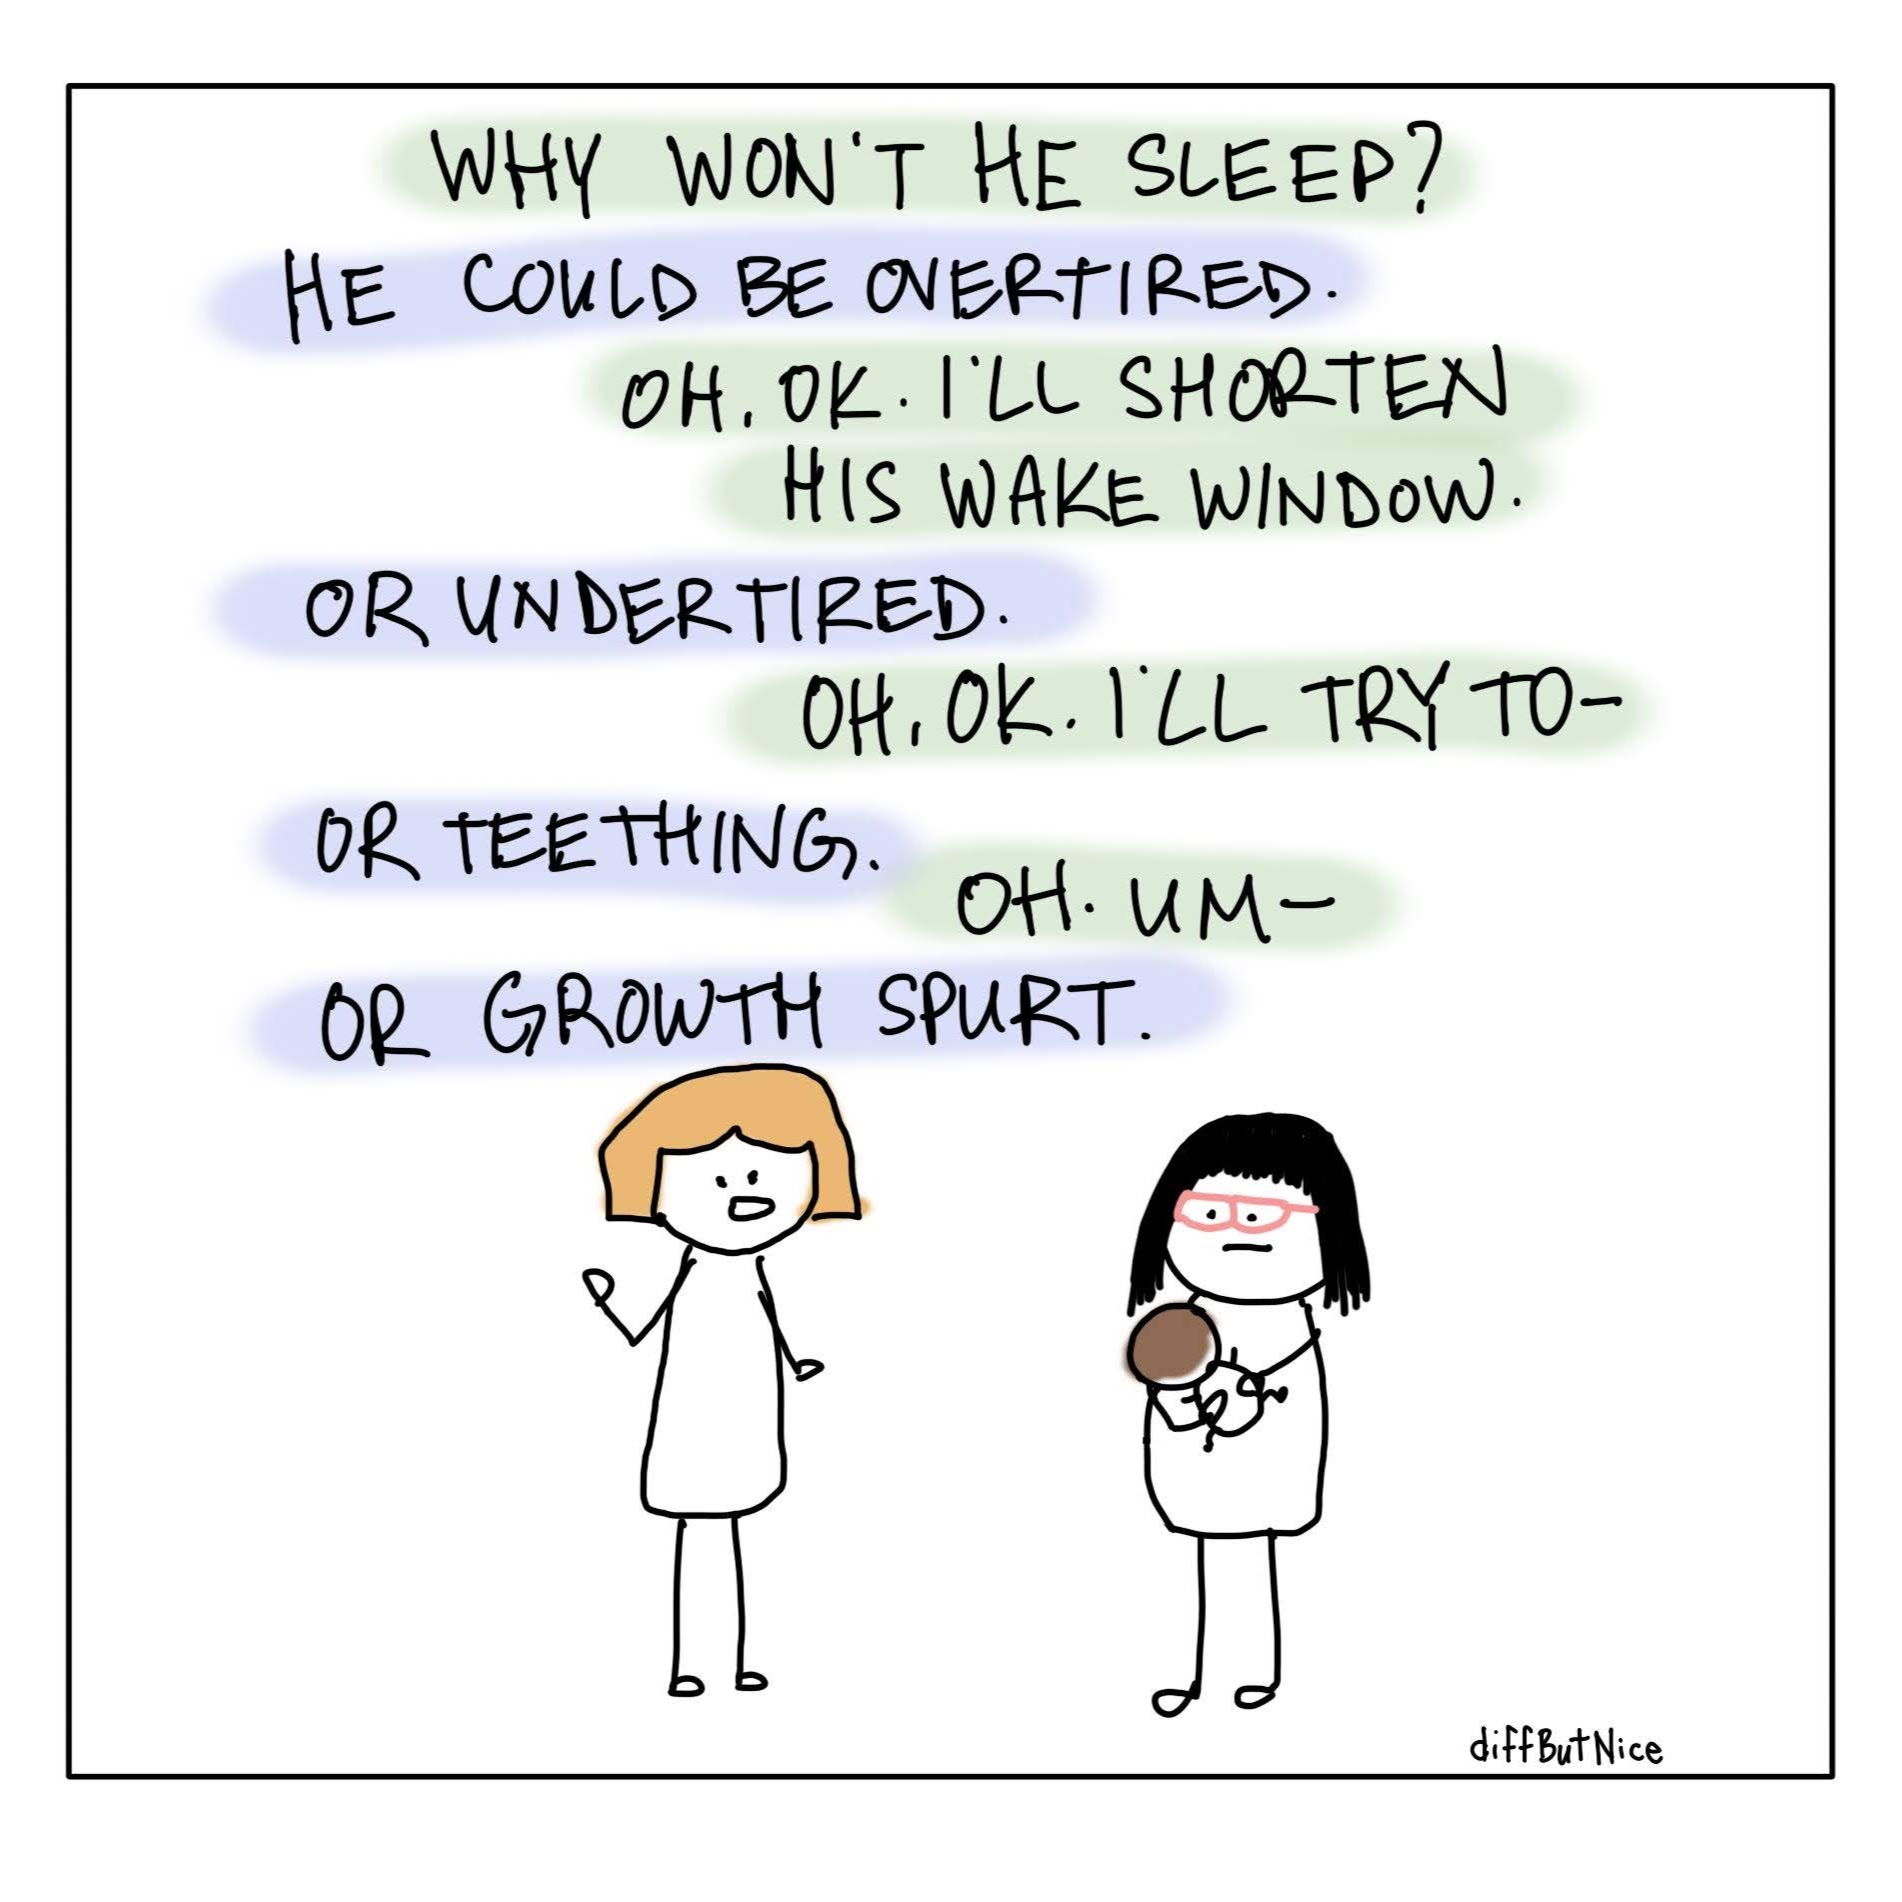 WHY WON'T HE SLEEP?
HE COULD BE OVERTIRED.
OH, OK. I'LL SHORTEN
HIS WAKE WINDOW.
OR UNDERTIRED.
OH, OK. I'LL TRY TO-
OR TEETHING.
OH. UM-
OR GROWTH SPURT.
diffButNice